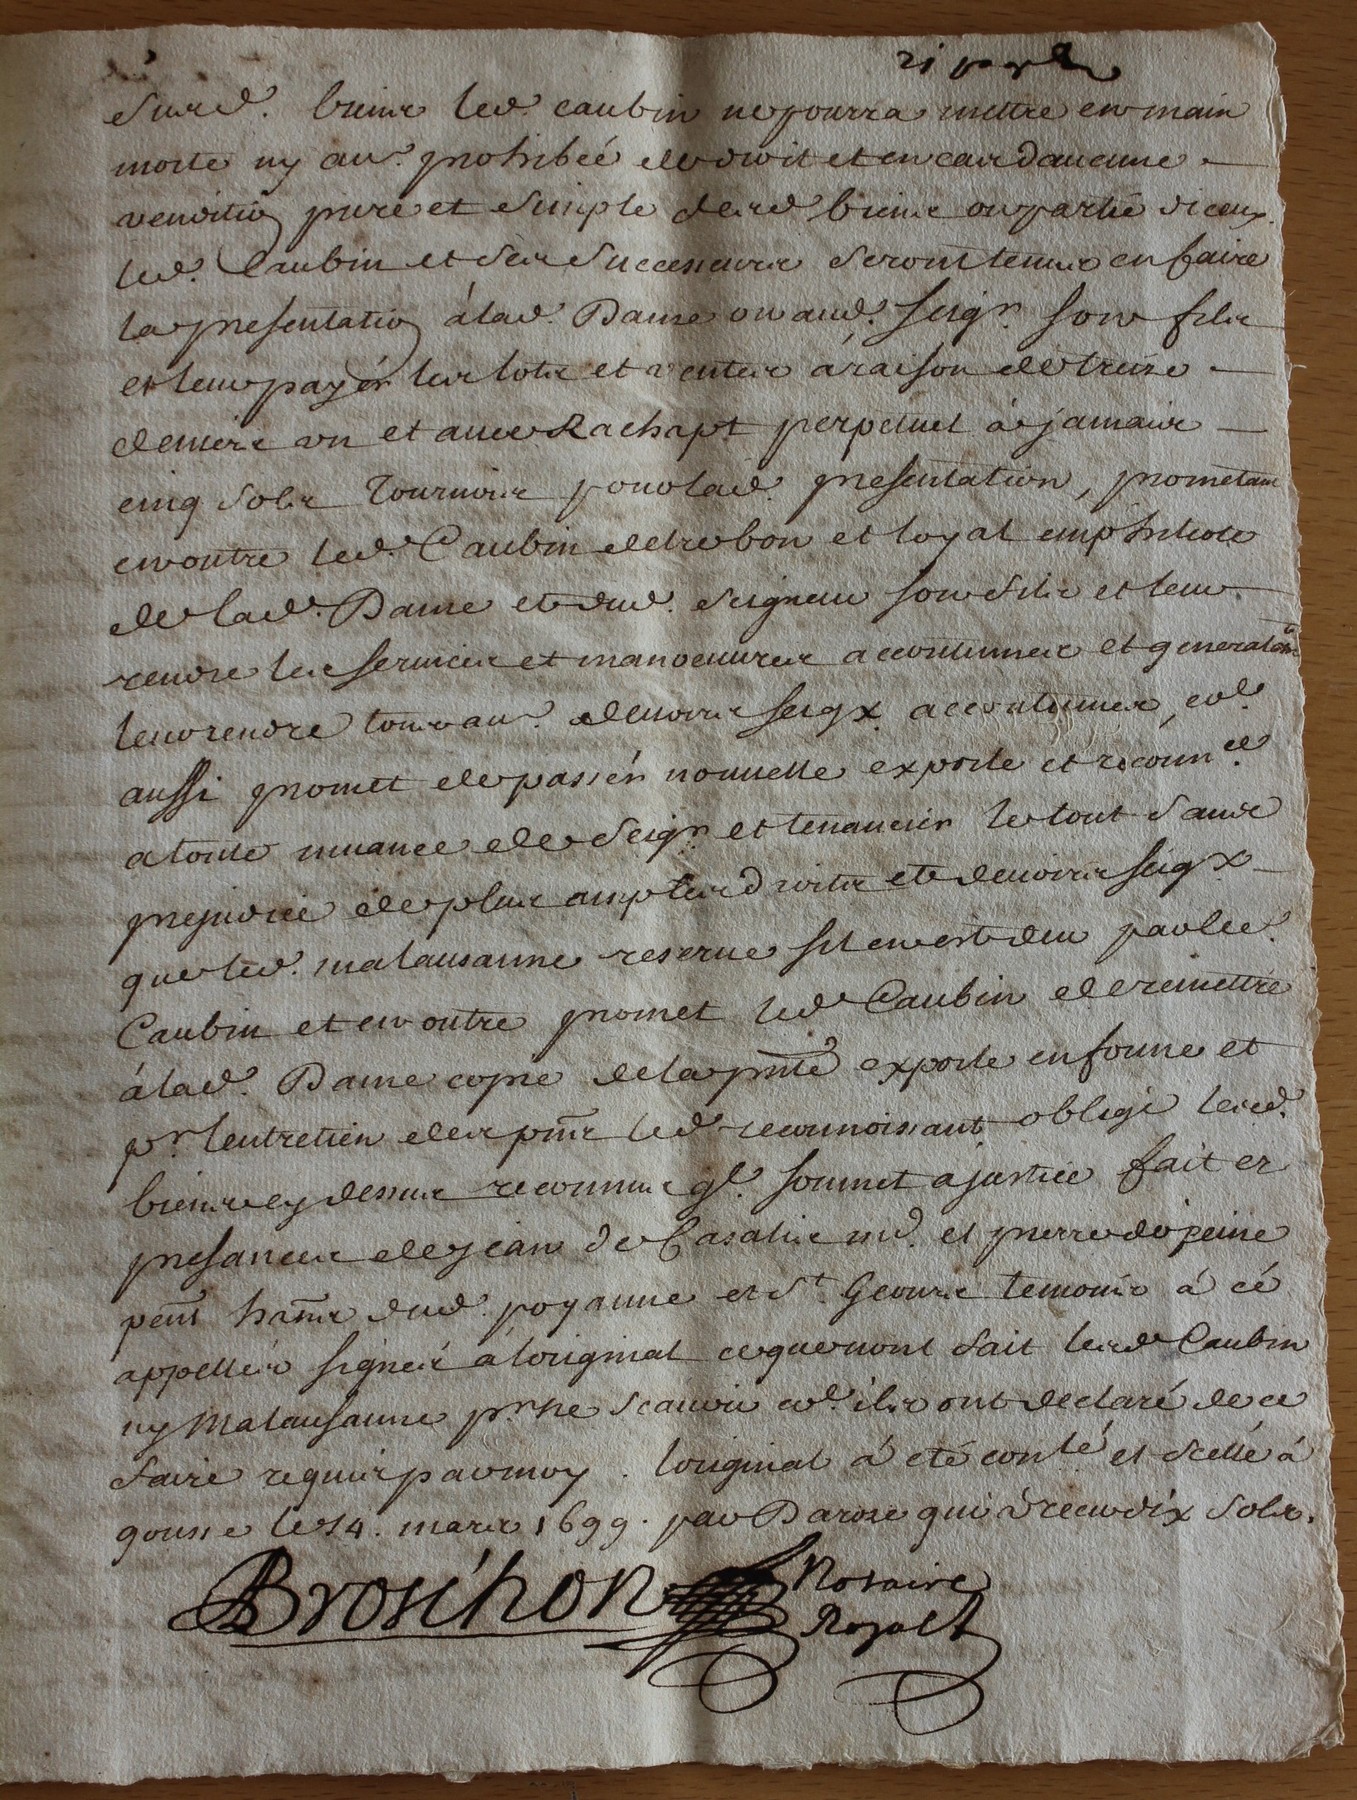 susd. biens led. caubin ne pourra mettre en main
morte ny aue. prohibée de droit et en cas daucune
vendition pure et simple desd biens ou partie diceux
led. Caubin et ses successeurs seront tenus en faire
la presentatio á lad. Dame ou aud. seigr. son fils
et leur payér les lots et ventes á raison de treize
deniers un et auec Rachapt perpetuel á jamais
cinq sols Tournois pour lad. presentation, prometant
en outre led. Caubin detre bon et loyal emphiteote
de lad. Dame et dud. seigneur son fils et leur
rendre les seruices et manoeuures accoutumés et generalemt
leur rendre tous au. deuoirs seigx accoutumés, co.e
aussi promet de passér nouuelle exporle et reconn.ce
a toute muance de seigr. et tenancier le tout sans
prejudice de plus amples droits et deuoirs seigx
que led. malausanne reserue sil en est deu par led.
Caubin et en outre promet led Caubin de remettre
á lad. Dame copie de la pnte exporle en forme et
pr. lentretien des pnts led. reconnoissant oblige lesd.
biens cy dessus reconnus ql. soumet a justice fait es
presances de jean de Casalis md. et pierre de peine
pents hants dud. poyanne et St. Geours temoins á cé
appellés signés á loriginal ce que nont fait lesd. Caubin
ny Malausanne pr ne scauoir co.e ils ont declaré de ce
faire requis par moy. loriginal á eté conlé et scellé á
gousse le 14. mars 1699. par Daroze qui á receu dix sols.
Brosthon Notaire
Royall